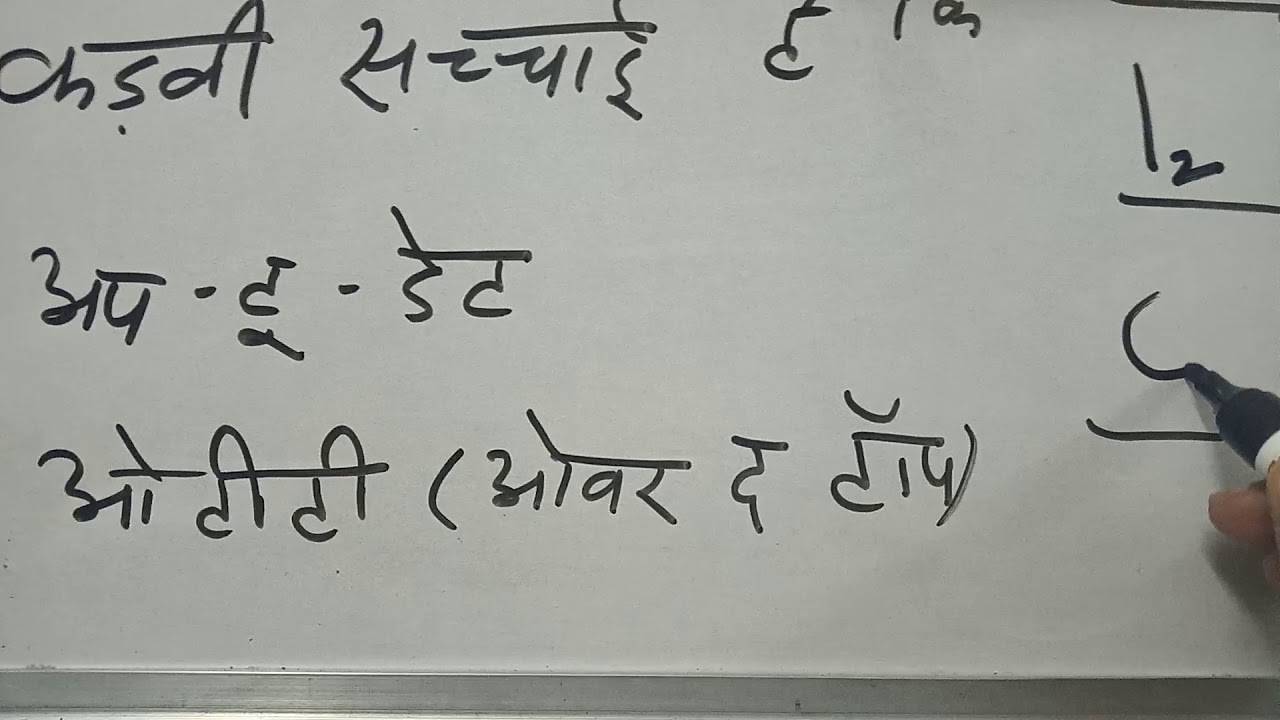 कड़वी सच्चाई है कि
अप-टू-डेट
ओटीटी (ओवर द टॉप)